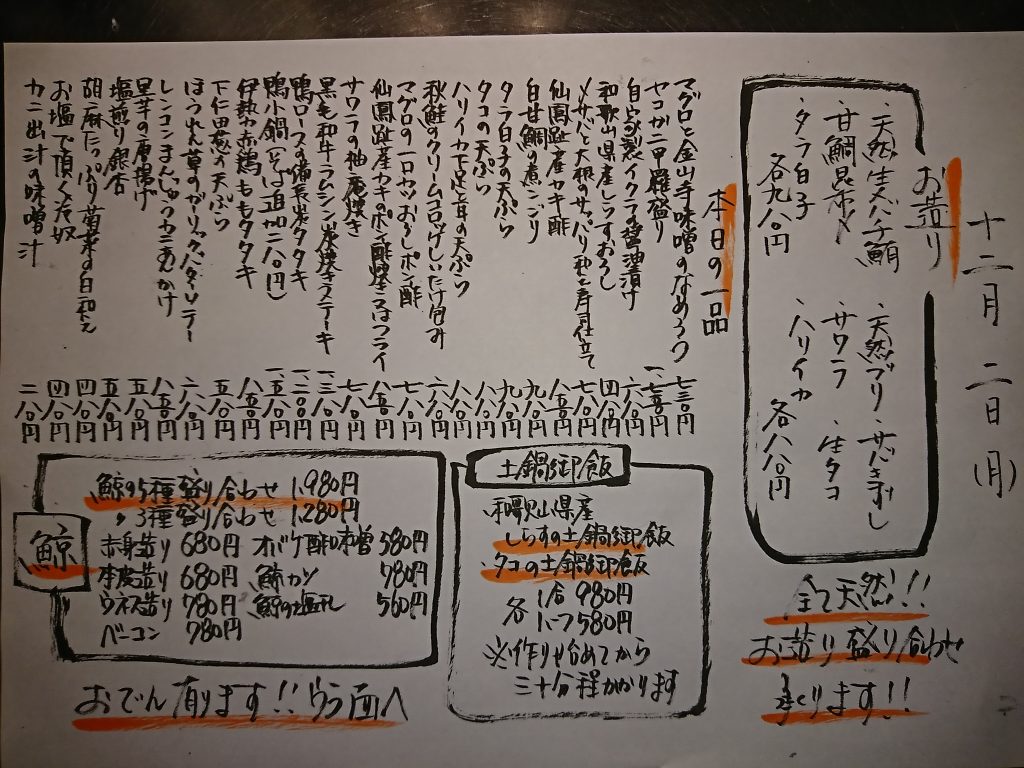 十二月 二日(月)
お造り
・天然生本バチ鮪
・甘鯛昆布〆
・タラ白子
各九八〇円
・天然ブリ
・サワラ
・ハリイカ
・生タコ
各八八〇円
全て天然!!
お造り盛り合わせ
承ります!!
本日の一品
マグロと金山寺味噌のなめろう 七三〇円
セコガニ甲羅盛り 一、七五〇円
自家製イクラの醤油漬け 六八〇円
和歌山県産しらすおろし 四八〇円
〆サバと大根のサッパリ和え寿司仕立て 七八〇円
仙鳳趾産カキ酢 八五〇円
白甘鯛の煮こごり
タラ白子の天ぷら 九八〇円
タコの天ぷら 八八〇円
ハリイカ下足と耳の天ぷら 八八〇円
秋鮭のクリームコロッケしいたけ包み 六八〇円
マグロの一口カツおろしポン酢 七八〇円
仙鳳趾産カキのポン酢焼 又はフライ 八五〇円
サワラの柚庵焼き 七八〇円
黒毛和牛ラムシン炭焼きステーキ
鴨ロースの備長炭タタキ
鴨小鍋(そば追加二八〇円)
伊勢赤鶏ももタタキ 八五〇円
下仁田葱の天ぷら 五八〇円
ほうれん草のガーリックバターソテー 六八〇円
レンコンまんじゅうカニあんかけ 八八〇円
里芋の唐揚げ 五八〇円
塩煎り銀杏 五八〇円
胡麻たっぷり菊菜の白和え 四八〇円
お塩で頂く冷奴 四八〇円
カニ出汁の味噌汁 二八〇円
土鍋御飯
和歌山県産
しらすの土鍋御飯
タコの土鍋御飯
各 1合 980円
ハーフ 580円
※作り始めてから
三十分程かかります
鯨
鯨の5種盛り合わせ 1,980円
〃 3種盛り合わせ 1,280円
赤身造り 680円 オバケ酢味噌 580円
本皮造り 680円 鯨カツ 780円
ウネス造り 780円 鯨の塩だれ 560円
ベーコン 780円
おでん有ります!!ウラ面へ